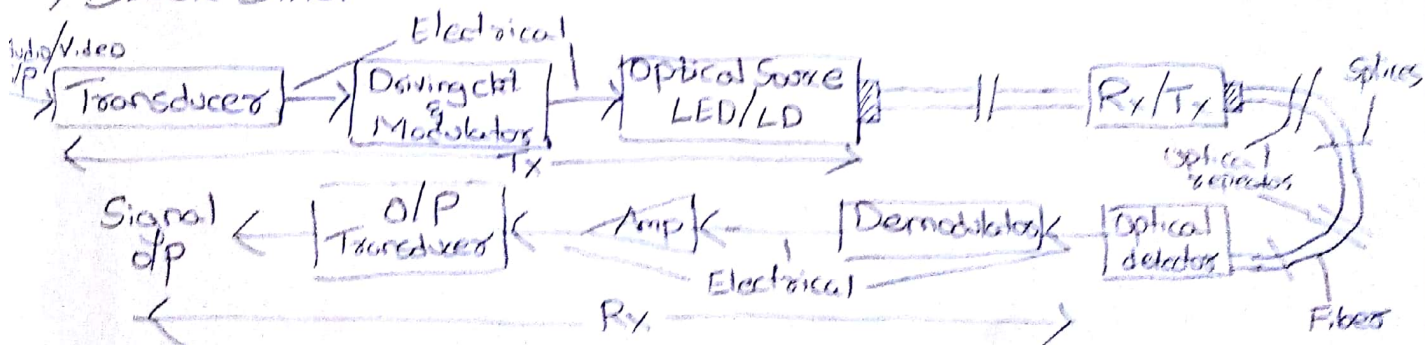 Electrical
Audio/Video
I/P
Transducer
Driving ckt
&
Modulator
Optical Sorce
LED/LD
Rx/Tx
Splices
Tx
Optical
Signal
O/P
O/P
Transducer
Amp
Demodulator
Optical
detector
Electrical
Rx
Fiber